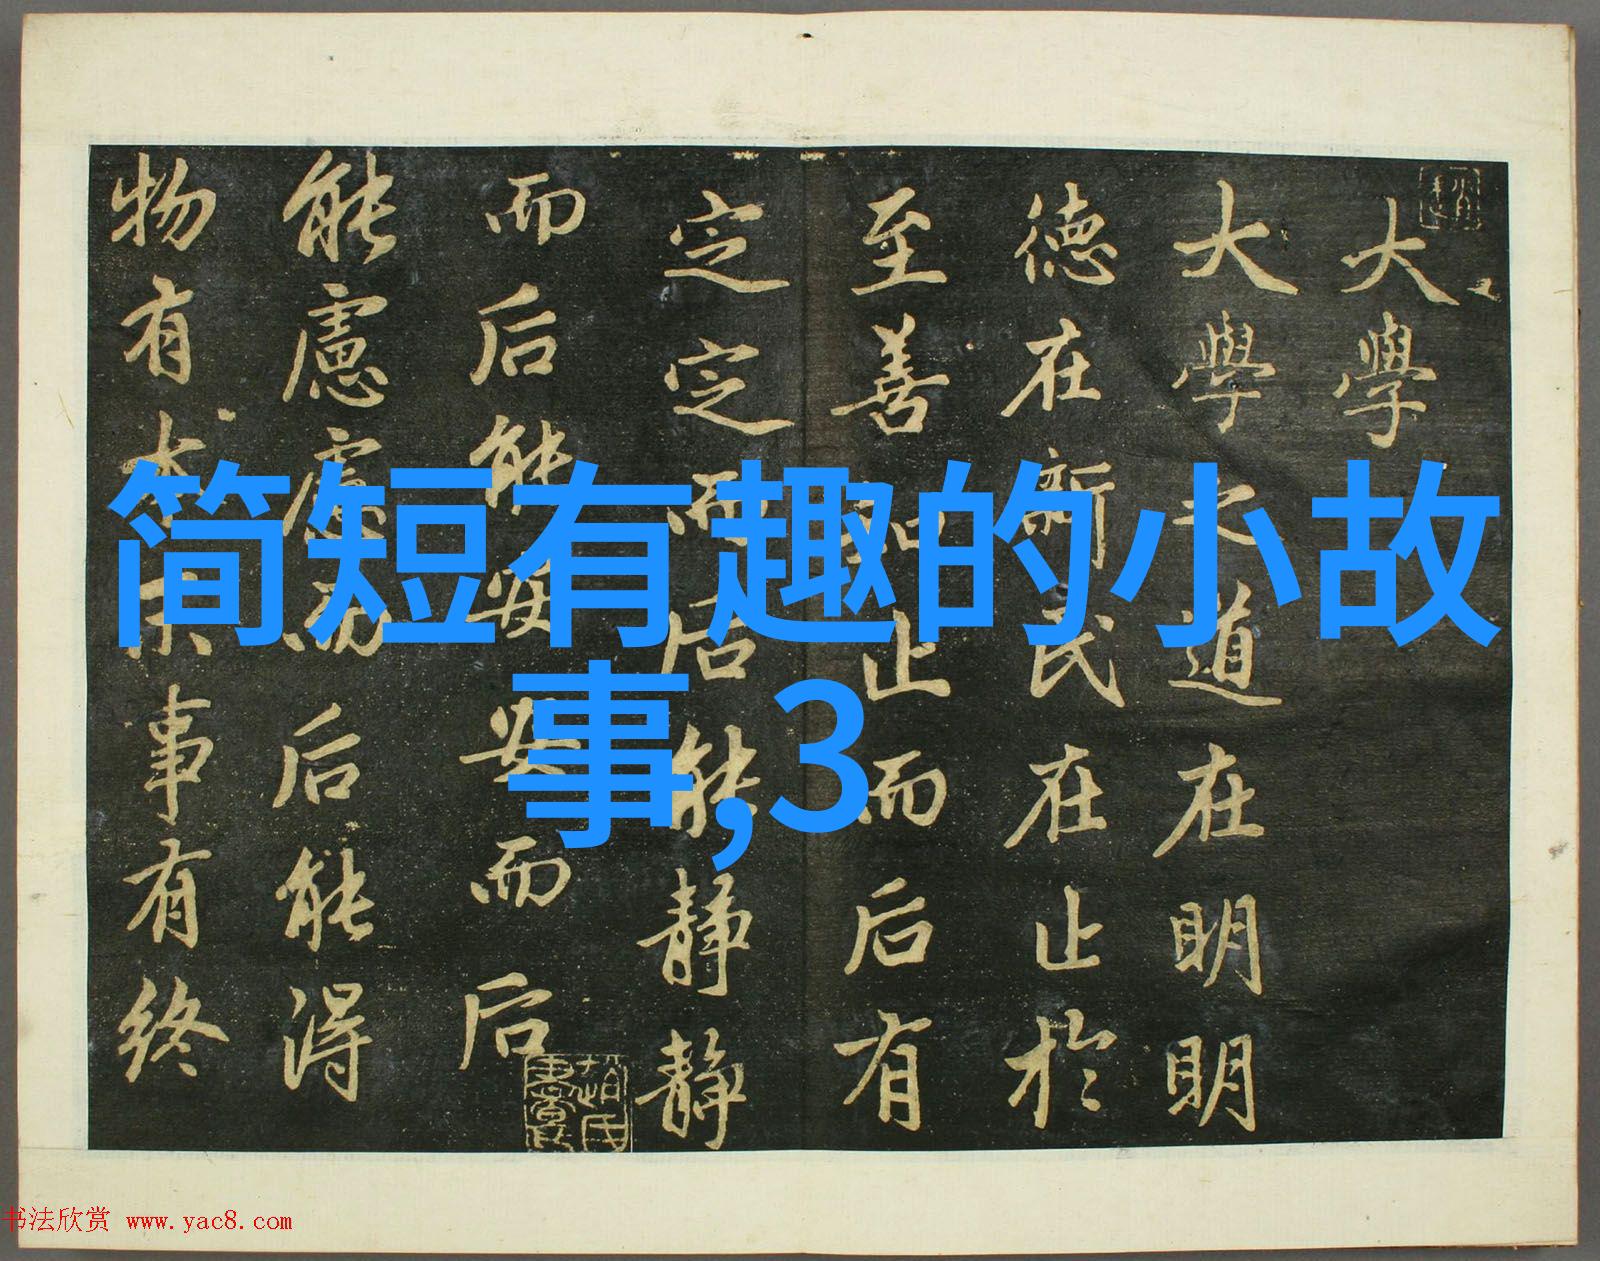 简短有趣的小故
事,3
大學
大學之道在明明
德在新民在止於
至善知止而后有
定定而后能静静
而后能安安而后
能慮慮而后能得
物有本末事有終
书法欣赏 www.yac8.com